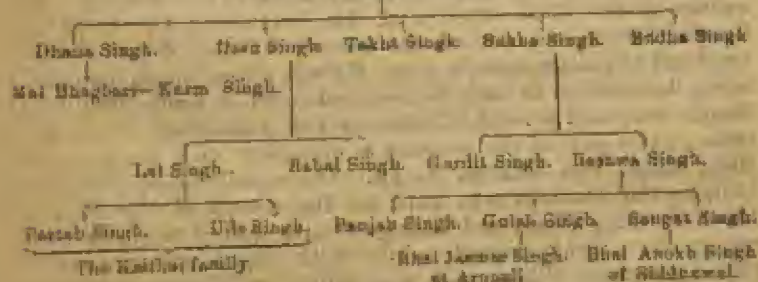 Dhana Singh. Desu Singh Takht Singh Sukha Singh. Budha Singh
Mai Bhagbari—Karm Singh
Lal Singh. Singh. Gurdit Singh. Basawa Singh.
Partab Singh. Ude Singh. Panjab Singh. Golab Singh Sangat Singh.
The Kaithal family. Bhai Jasmer Singh. Bhai Anokh Singh
of Arnauli of Sidhowal.